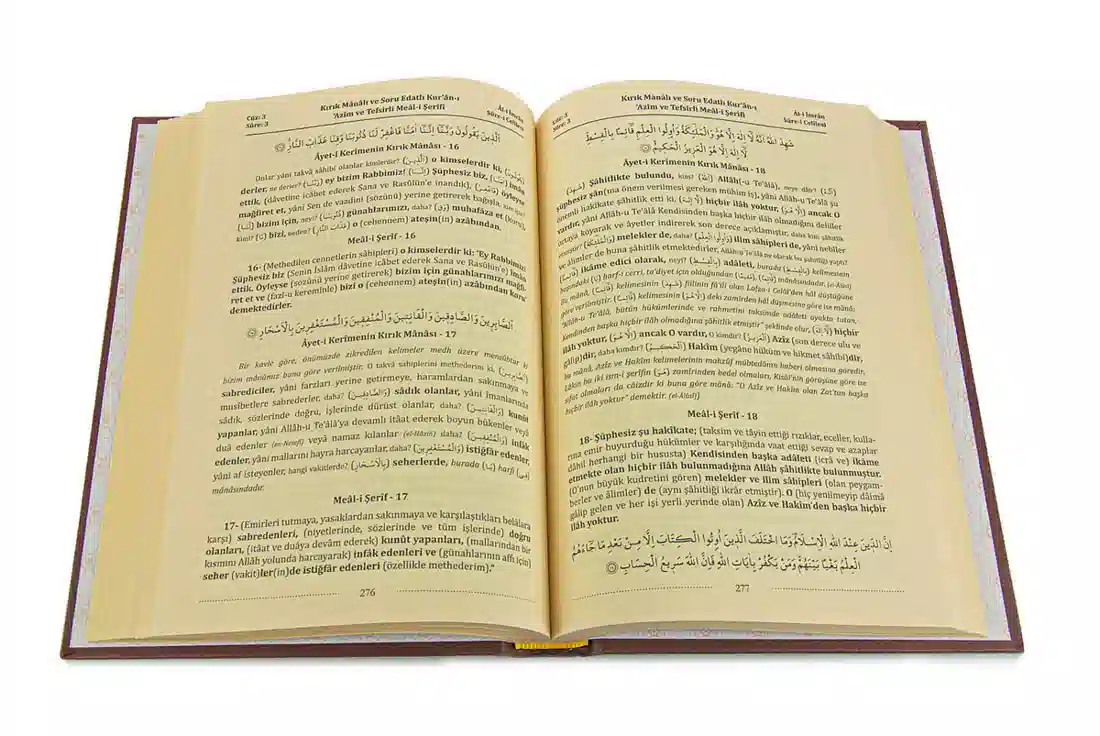 Cüz: 3
Sûre: 3
Kırık Mânâlı ve Soru Edatlı Kur'ân-ı
'Azîm ve Tefsirli Meâl-i Şerîfi
Âl-i İmrân
Sûre-i Celîlesi
اَلَّذِينَ يَقُولُونَ رَبَّنَا إِنَّنَا آمَنَّا فَاغْفِرْ لَنَا ذُنُوبَنَا وَقِنَا عَذَابَ النَّارِ
Âyet-i Kerîmenin Kırık Mânâsı - 16
Onlar yâni takvâ sâhibi olanlar kimlerdir? (اَلَّذِينَ) o kimselerdir ki, (يَقُولُونَ)
derler, ne derler? (رَبَّنَا) ey bizim Rabbimiz! (إِنَّنَا) Şüphesiz biz, (آمَنَّا) îmân
ettik, (dâvetine icâbet ederek Sana ve Rasûlün'e inandık), (فَاغْفِرْ) öyleyse
mağfiret et, yâni Sen de vaadini (sözünü) yerine getirerek bağışla,
(لَنَا) bizim için, neyi? (ذُنُوبَنَا) günahlarımızı, daha? (وَقِ) muhafaza et (koru),
kimi? (نَا) bizi, neden? (عَذَابَ النَّارِ) o (cehennem) ateşin(in) azâbından.
Meâl-i Şerîf - 16
16- (Methedilen cennetlerin sâhipleri) o kimselerdir ki: "Ey Rabbimiz!
Şüphesiz biz (Senin İslâm dâvetine icâbet ederek Sana ve Rasûlün'e) îmân
ettik. Öyleyse (sözünü yerine getirerek) bizim için günahlarımızı mağfi-
ret et ve (fazl-u kereminle) bizi o (cehennem) ateşin(in) azâbından koru"
demektedirler.
اَلصَّابِرِينَ وَالصَّادِقِينَ وَالْقَانِتِينَ وَالْمُنْفِقِينَ وَالْمُسْتَغْفِرِينَ بِالْأَسْحَارِ
Âyet-i Kerîmenin Kırık Mânâsı - 17
Bir kavle göre, önümüzde zikredilen kelimeler medh üzere mensûbtur ki
bizim mânâmız buna göre verilmiştir. O takvâ sâhiplerini methederim ki, (اَلصَّابِرِينَ)
sabrediciler, yâni farzları yerine getirmeye, haramlardan sakınmaya ve
musibetlere sabrederler, daha? (وَالصَّادِقِينَ) sâdık olanlar, yâni îmanlarında
sâdık, sözlerinde doğru, işlerinde dürüst olanlar, daha? (وَالْقَانِتِينَ) kunût
yapanlar, yâni Allâh-u Te'âlâ'ya devamlı itâat ederek boyun bükenler veyâ
duâ edenler (en-Nesefî) veyâ namaz kılanlar (el-Hâzin) daha? (وَالْمُنْفِقِينَ) infâk
edenler, yâni mallarını hayra harcayanlar, daha? (وَالْمُسْتَغْفِرِينَ) istiğfâr edenler,
yâni af isteyenler, hangi vakitlerde? (بِالْأَسْحَارِ) seherlerde, burada (بَا) harfi (فِي)
mânâsındadır.
Meâl-i Şerîf - 17
17- (Emirleri tutmaya, yasaklardan sakınmaya ve karşılaştıkları belâlara
karşı) sabredenleri, (niyetlerinde, sözlerinde ve tüm işlerinde) doğru
olanları, (itâat ve duâya devâm ederek) kunût yapanları, (mallarından bir
kısmını Allâh yolunda harcayarak) infâk edenleri ve (günahlarının affı için)
seher (vakit)ler(in)de istiğfâr edenleri (özellikle methederim)."
276
Cüz: 3
Sûre: 3
Kırık Mânâlı ve Soru Edatlı Kur'ân-ı
'Azîm ve Tefsirli Meâl-i Şerîfi
Âl-i İmrân
Sûre-i Celîlesi
شَهِدَ اللهُ أَنَّهُ لَا إِلٰهَ إِلَّا هُوَ وَالْمَلٰئِكَةُ وَأُولُوا الْعِلْمِ قَائِمًا بِالْقِسْطِ
لَا إِلٰهَ إِلَّا هُوَ الْعَزِيزُ الْحَكِيمُ
Âyet-i Kerîmenin Kırık Mânâsı - 18
(شَهِدَ) Şâhitlikte bulundu, kim? (اللهُ) Allâh(-u Te'âlâ), neye dâir? (أَنَّهُ)
şüphesiz şân(ına önem verilmesi gereken mühim iş), yâni Allâh-u Te'âlâ şu
önemli hakîkate şâhitlik etti ki, (لَا إِلٰهَ) hiçbir ilâh yoktur, (إِلَّا هُوَ) ancak O
vardır, yâni Allâh-u Te'âlâ Kendisinden başka hiçbir ilâh olmadığını delîller
ortaya koyarak ve âyetler indirerek son derece açıklamıştır,
(وَالْمَلٰئِكَةُ) melekler de, daha? (وَأُولُوا الْعِلْمِ) ilim sâhipleri de, yâni nebîler
ve âlimler de buna şâhitlik etmektedirler.
(قَائِمًا) ikâme edici olarak, neyi? (بِالْقِسْطِ) adâleti, burada (بِالْقِسْطِ) kelimesinin
başındaki (بِ) harf-i cerri, ta'diyet için olduğundan
Bu mânâ, (قَائِمًا) kelimesinin (شَهِدَ) fiilinin fâ'ili olan Lafza-i Celâl'den hâl düştüğüne
göre verilmiştir. (قَائِمًا) kelimesinin (هُوَ) deki zamirden hâl düşmesine göre ise mânâ:
"Allâh-u Te'âlâ, bütün hükümlerinde ve rahmetini taksiminde adâleti ayakta tutan,
Kendinden başka hiçbir ilâh olmadığına şâhitlik etmiştir" şeklinde olur, (لَا إِلٰهَ) hiçbir
ilâh yoktur, (إِلَّا هُوَ) ancak O vardır, o kimdir? (الْعَزِيزُ) Azîz (son derece ulu ve
gâlip)dir, daha kimdir? (الْحَكِيمُ) Hakîm (yegâne hüküm ve hikmet sâhibi)dir,
bu mânâ, Azîz ve Hakîm kelimelerinin mahzûf mübtedânın haberi olmasına göredir,
Lâkin bu iki ism-i şerîfin (هُوَ) zamirinden bedel olmaları, Kisâî'nin görüşüne göre ise
sıfat olmaları da câizdir ki buna göre mânâ: "O Azîz ve Hakîm olan Zat'tan başka
hiçbir ilâh yoktur" demektir. (el-Âlûsî)
Meâl-i Şerîf - 18
18- Şüphesiz şu hakîkate; (taksim ve tâyin ettiği rızıklar, eceller, kulla-
rına emir buyurduğu hükümler ve karşılığında vaat ettiği sevap ve azaplar
dâhil herhangi bir hususta) Kendisinden başka adâleti (icrâ ve) ikâme
etmekte olan hiçbir ilâh bulunmadığına Allâh şâhitlikte bulunmuştur.
(O'nun büyük kudretini gören) melekler ve ilim sâhipleri (olan peygam-
berler ve âlimler) de (aynı şâhitliği ikrâr etmiştir). O (hiç yenilmeyip dâimâ
gâlip gelen ve her işi yerli yerinde olan) Azîz ve Hakîm'den başka hiçbir
ilâh yoktur.
إِنَّ الدِّينَ عِنْدَ اللهِ الْإِسْلَامُ وَمَا اخْتَلَفَ الَّذِينَ أُوتُوا الْكِتَابَ إِلَّا مِنْ بَعْدِ مَا جَاءَهُمُ
الْعِلْمُ بَغْيًا بَيْنَهُمْ وَمَنْ يَكْفُرْ بِآيَاتِ اللهِ فَإِنَّ اللهَ سَرِيعُ الْحِسَابِ
277